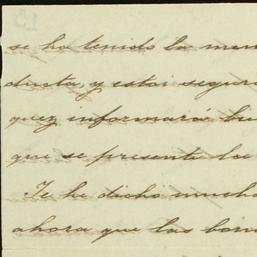 se ha tenido la men
ducta, y estoi segur
quez informará bie
que se presente la
Te he dicho mucha
ahora que las bom